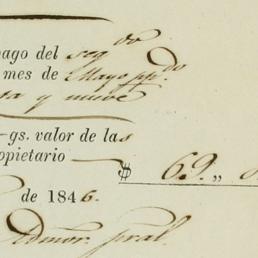 pago del seg.do
mes de Mayo pp.do
ta y nueve
gs. valor de las
opietario $ 69 „ 0
de 1846.
Admor. pral.